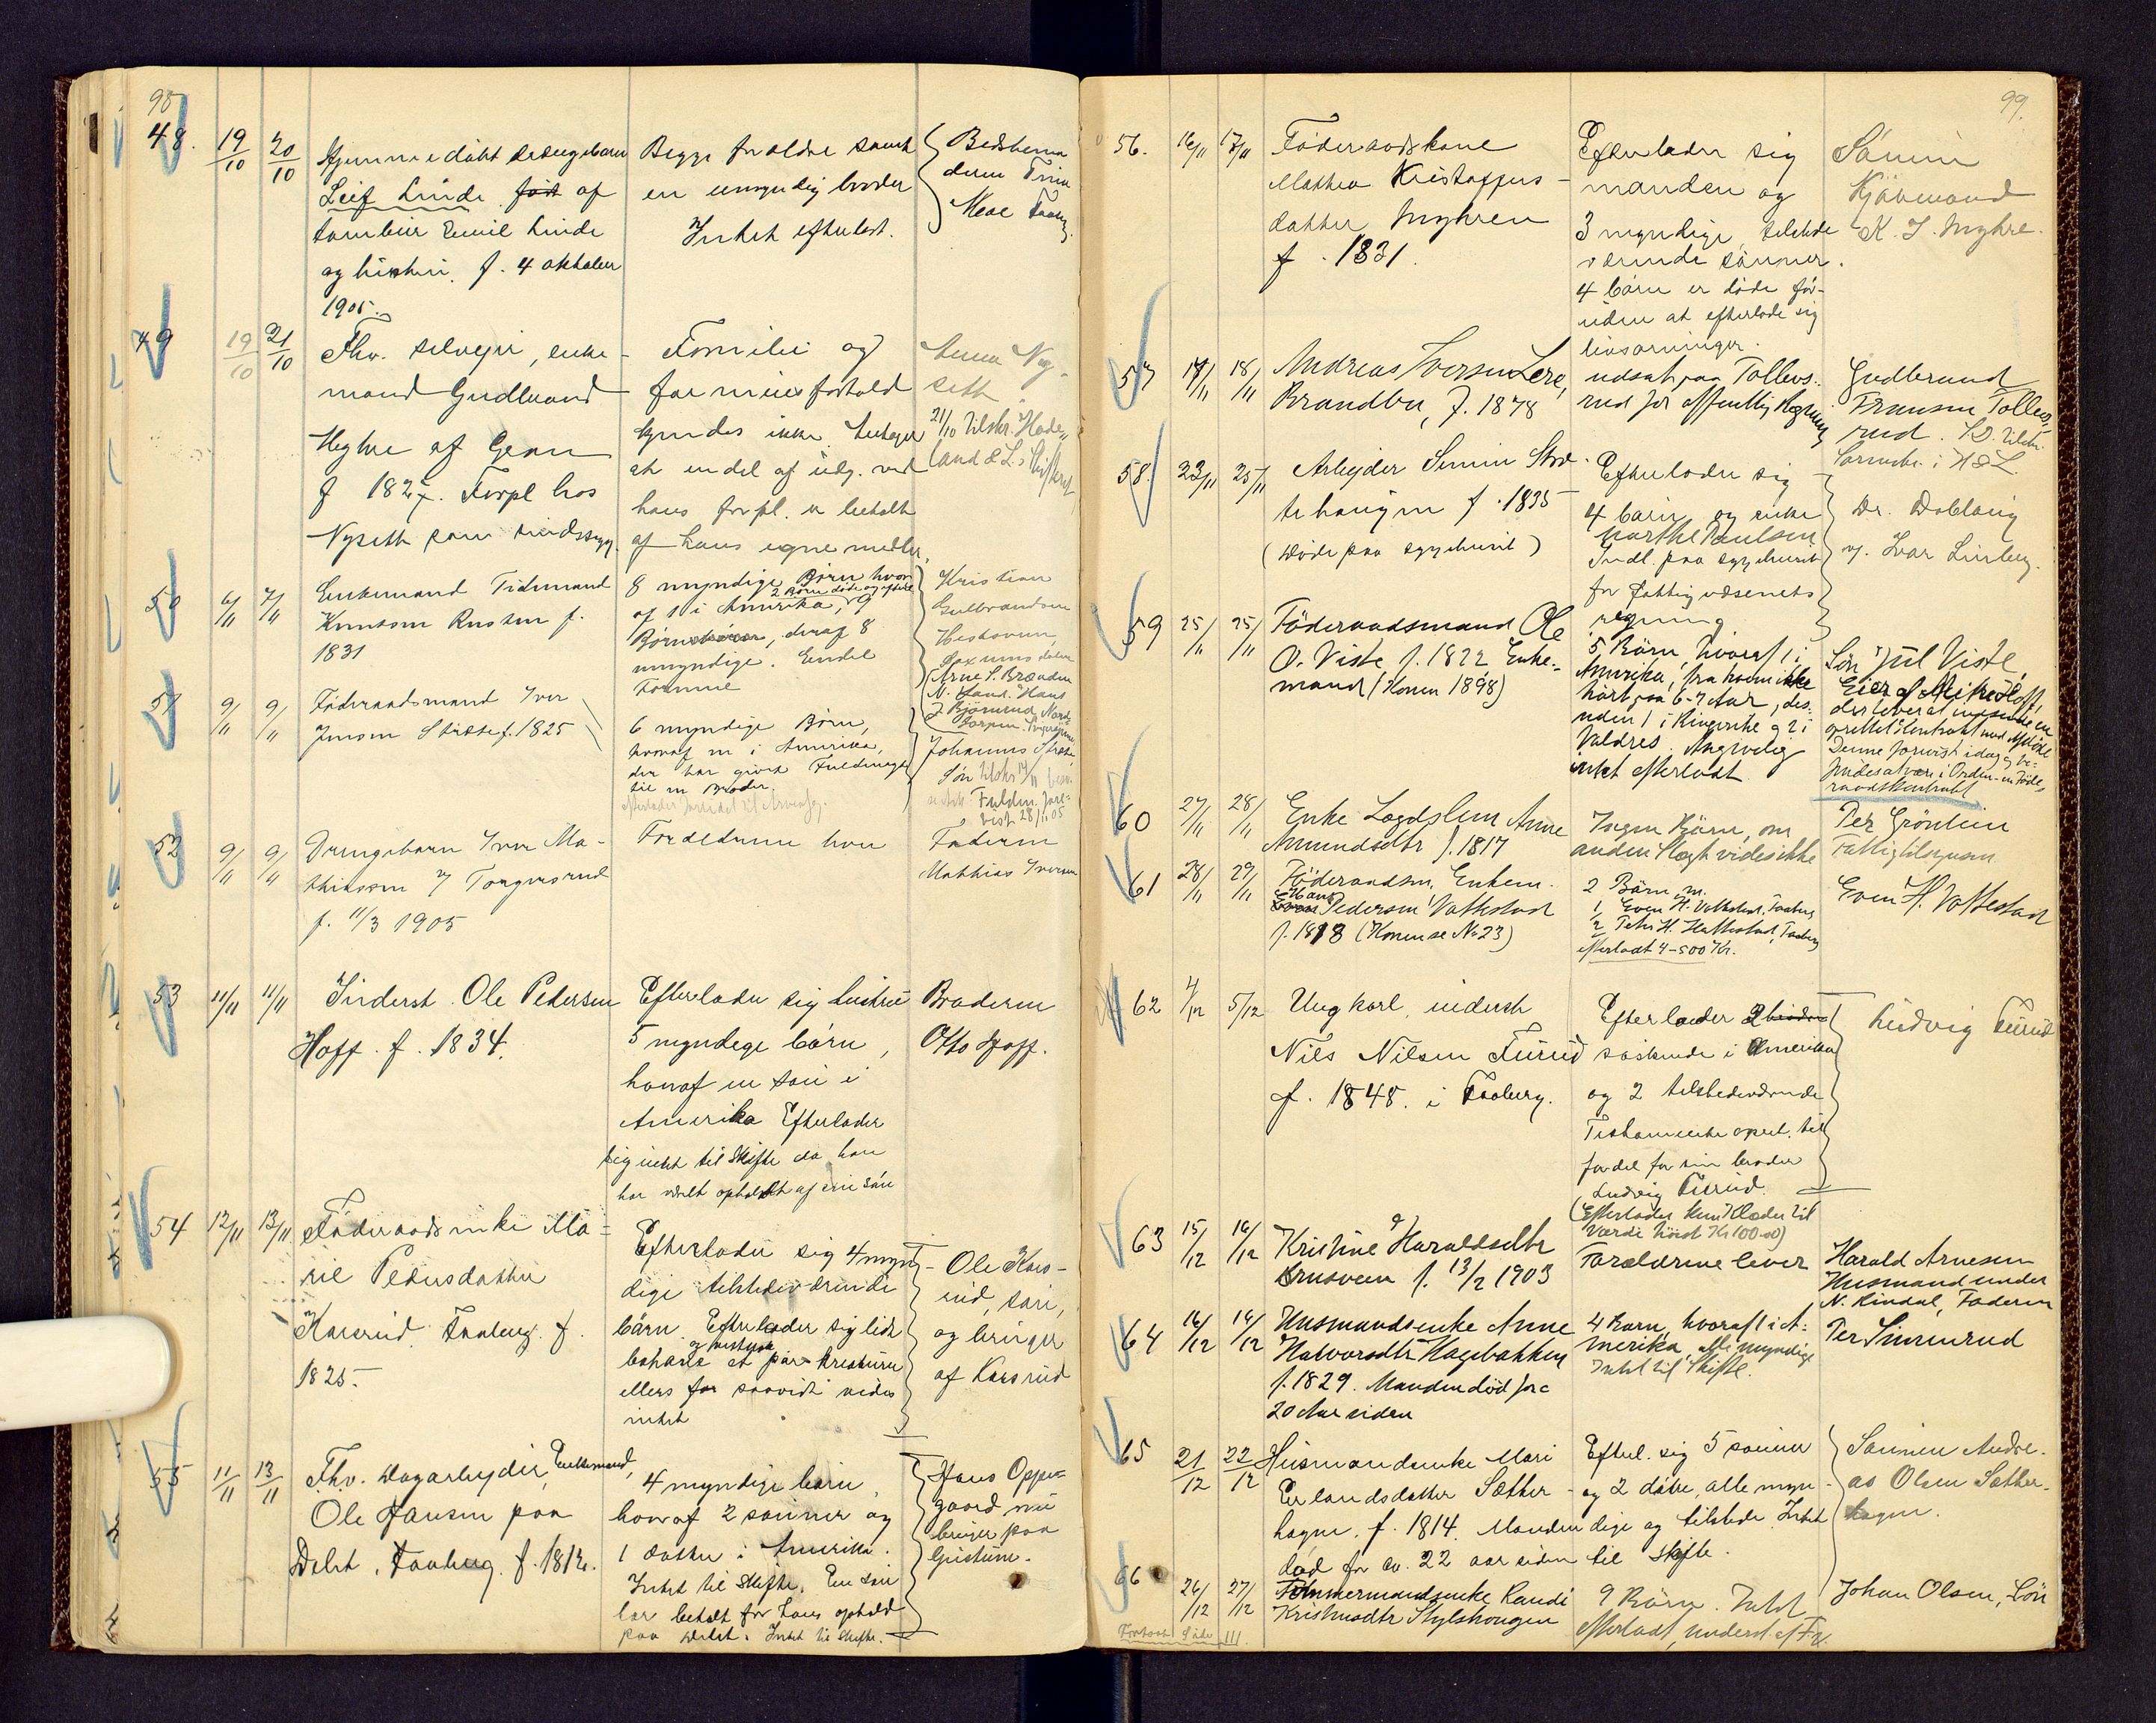 98
48. 19/10 20/10 Hjemmedøbt drengebarn
Leif Linde født af
Emil Linde
og hustru. f. 4 oktober
1905.
Begge forældre samt
en umyndig broder
Intet efterladt.
Bedstemo
deren Trine
Moe Faaberg
49 19/10 21/10 Fhv. selveier, enke-
mand Gudbrand
Myhre af Gran
f 1827. Forpl hos
Nyseth som sindssyg.
Familie og
formuesforhold
kjendes ikke. Antager
at en del af udg. ved
hans forpl. er betalt
af hans egne midler.
Anna Ny-
seth
21/10 tilskr. Hade-
land & L.s Skifteret
50 6/11 7/11 Enkemand Tidemand
Knutsen Rusten f.
1831
8 myndige Børn hvor
af 1 i Amerika, 2 Børn døde og efterl 9
Børnebørn, deraf 8
umyndige. Endel
Formue
Kristian
Gulbrandsen
Arne S. Brænden
N. Hans
J. Bjørnerud, Nord-
51 9/11 9/11 Føderaadsmand Iver
Jensen Stræte f. 1825
6 myndige Børn,
hvoraf en i Amerika,
der har givet Fuldmagt
til en Broder.
Johannes Stræte
Søn
Fuldm. fore-
vist 28/11 05
52 9/11 9/11 Drengebarn Iver Ma-
thiassen af Torgersrud
f. 11/3 1905
Forældrene lever
Faderen
Mathias Iversen
53 11/11 11/11 Inderst. Ole Pedersen
Hoff. f. 1834.
Efterlader sig hustru
5 myndege børn,
hvoraf en søn i
Amerika Efterlader
sig intet til Skifte da han
har været opholdt af sin søn
Broderen
Otto Hoff.
54 12/11 13/11 Føderaads enke Ma-
rie Pedersdatter
Karsrud Faaberg. f.
1825.
Efterlader sig 4 myn-
dige tilstedeværende
børn. Efterlader sig lidt
bohave et par kreaturer
ellers for saavidt vides
intet
Ole Kars-
rud, søn,
og bruger
af Karsrud
55 11/11 13/11 Fhv. Dagarbejder, Enkemand,
Ole Hansen paa
Dalet, Faaberg. f. 1812.
4 myndige børn,
hvoraf 2 sønner og
1 datter i Amerika.
Intet til Skifte. En søn
har betalt for hans ophold
paa Dalet. Intet til Skifte.
Hans Oppe-
gaard nu
bruger paa
99.
56. 16/11 17/11 Føderaadskone
Mathea Kristoffers-
datter Myhren
f. 1831.
Efterlader sig
manden og
3 myndige, tilstede
værende sønner.
4 børn er døde for-
uden at efterlade sig
livsarvinger.
Sønnen
Kjøbmand
K. J. Myhre.
57 17/11 18/11 Andreas Iversen Lere,
Brandbu, f. 1878
udsat paa Tollers-
rud for offentlig Regning
Gudbrand
Fransen Tollers-
rud. S.D. tilskr.
Sorenskr. i H & L
58. 23/11 25/11 Arbejder Simen Stor-
tehaugen f. 1835
(Døde paa sygehuset)
Efterlader sig
4 børn og enke
Marthe Paulsen
Indl. paa sygehuset
for fattigvæsenets
regning
Dr. Dobloug
v. Ivar Linberg.
59 25/11 25/11 Føderaadsmand Ole
O. Viste f. 1822 Enke-
mand (Konen 1898)
5 Børn, hvoraf 1 i
Amerika, fra hvem ikke
hørt paa 6-7 Aar, des-
uden 1 i Ringerike og 2 i
Valdres. Angivelig
intet efterladt
Søn Jul Viste
Eier af
der lever at
oprettet Kontrakt med Afdøde
Denne forevist idag og be-
findes at være i Orden - en Føde-
raadskontrakt
60 27/11 28/11 Enke Anne
Amundsdtr f. 1817
Ingen Børn, om
anden Slægt vides ikke
Per Grønlien
Fattigtilsynsm.
61 28/11 29/11 Føderaadsm. Enkem.
Hans Pedersen Vattestad
f. 1818 (Konen se No 23)
2 Børn, m.
1, Even H. Vattestad, Faaberg
2 Peter H. Hattestad, Faaberg
efterladt 4-500 Kr.
Even H. Vattestad
62 4/12 5/12 Ungkarl, inderst
Nils Nilsen Furud
f. 1848. i Faaberg.
Efterlader 2 brødre
søskende i Amerika
og 2 tilstedeværende
Testamente opret. til
fordel for sin broder
Ludvig Furud.
(Efterlader kun Klæder til
Værdi høist Kr 100-00)
Ludvig Furud
63 15/12 16/12 Kristine Haraldsdtr
Brusveen f. 13/2 1903
Forældrene lever
Harald Arnesen
Husmand under
N. Rindal, Faderen
64 16/12 16/12 Husmandsenke Anne
Halvorsdtr Hagebakken
f. 1829. Manden død for
20 Aar siden
4 Børn, hvoraf 1 i A-
merika, alle myndige
Intet til Skifte.
Per Simenrud
65 21/12 22/12 Husmandsenke Mari
Erlandsdatter Sæther-
hagen. f. 1814. Manden
død for ca. 22 aar siden
Efterl. sig 5 sønner
og 2 døtre, alle myn-
dige og tilstede. Intet
til skifte.
Sønnen Andre-
as Olsen Sæther-
hagen.
66 26/12 27/12 Tømmermandsenke Randi
Kristensdtr Stylshaugen
9 Børn. Intet
efterladt, underst. af Fv.
Johan Olsen, Søn
Fortsat Side 111.